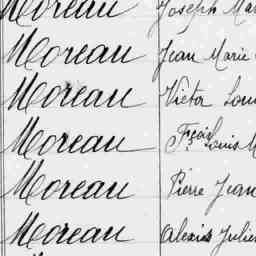 Moreau Joseph Ma
Moreau Jean Marie
Moreau Victor Loui
Moreau Fçois Louis M
Moreau Pierre Jean
Moreau Alexis Julie